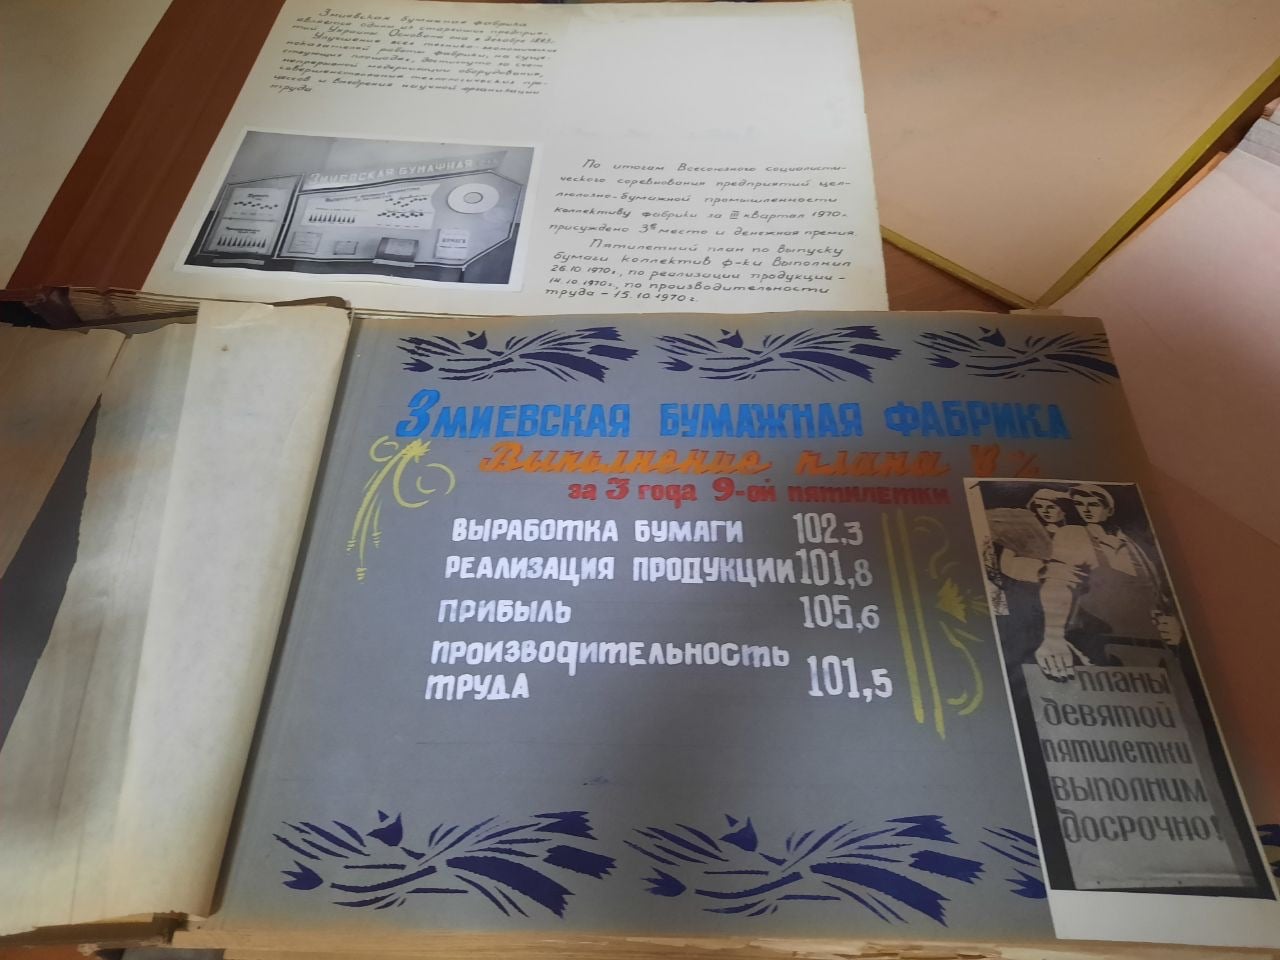 Змиевская бумажная фабрика
является одним из старейших предприя-
тий Украины. Основана она в декабре
Улучшение всех технико-экономических
показателей работы фабрики, на суще-
ствующих площадях, достигнуто за счет
непрерывной модернизации оборудования,
совершенствования технологических про-
цессов и внедрения научной организации
труда.
ЗМИЕВСКАЯ БУМАЖНАЯ
БУМАГА
По итогам Всесоюзного социалисти-
ческого соревнования предприятий цел-
люлозно-бумажной промышленности
коллективу фабрики за III квартал 1970г.
присуждено 3е место и денежная премия.
Пятилетний план по выпуску
бумаги коллектив ф-ки выполнил
26.10.1970г., по реализации продукции –
14.10.1970г., по производительности
труда – 15.10.1970г.
ЗМИЕВСКАЯ БУМАЖНАЯ ФАБРИКА
Выполнение плана в %
за 3 года 9-ой пятилетки
ВЫРАБОТКА БУМАГИ 102,3
РЕАЛИЗАЦИЯ ПРОДУКЦИИ 101,8
ПРИБЫЛЬ 105,6
ПРОИЗВОДИТЕЛЬНОСТЬ
ТРУДА 101,5
ПЛАНЫ
ДЕВЯТОЙ
ПЯТИЛЕТКИ
ВЫПОЛНИМ
ДОСРОЧНО!